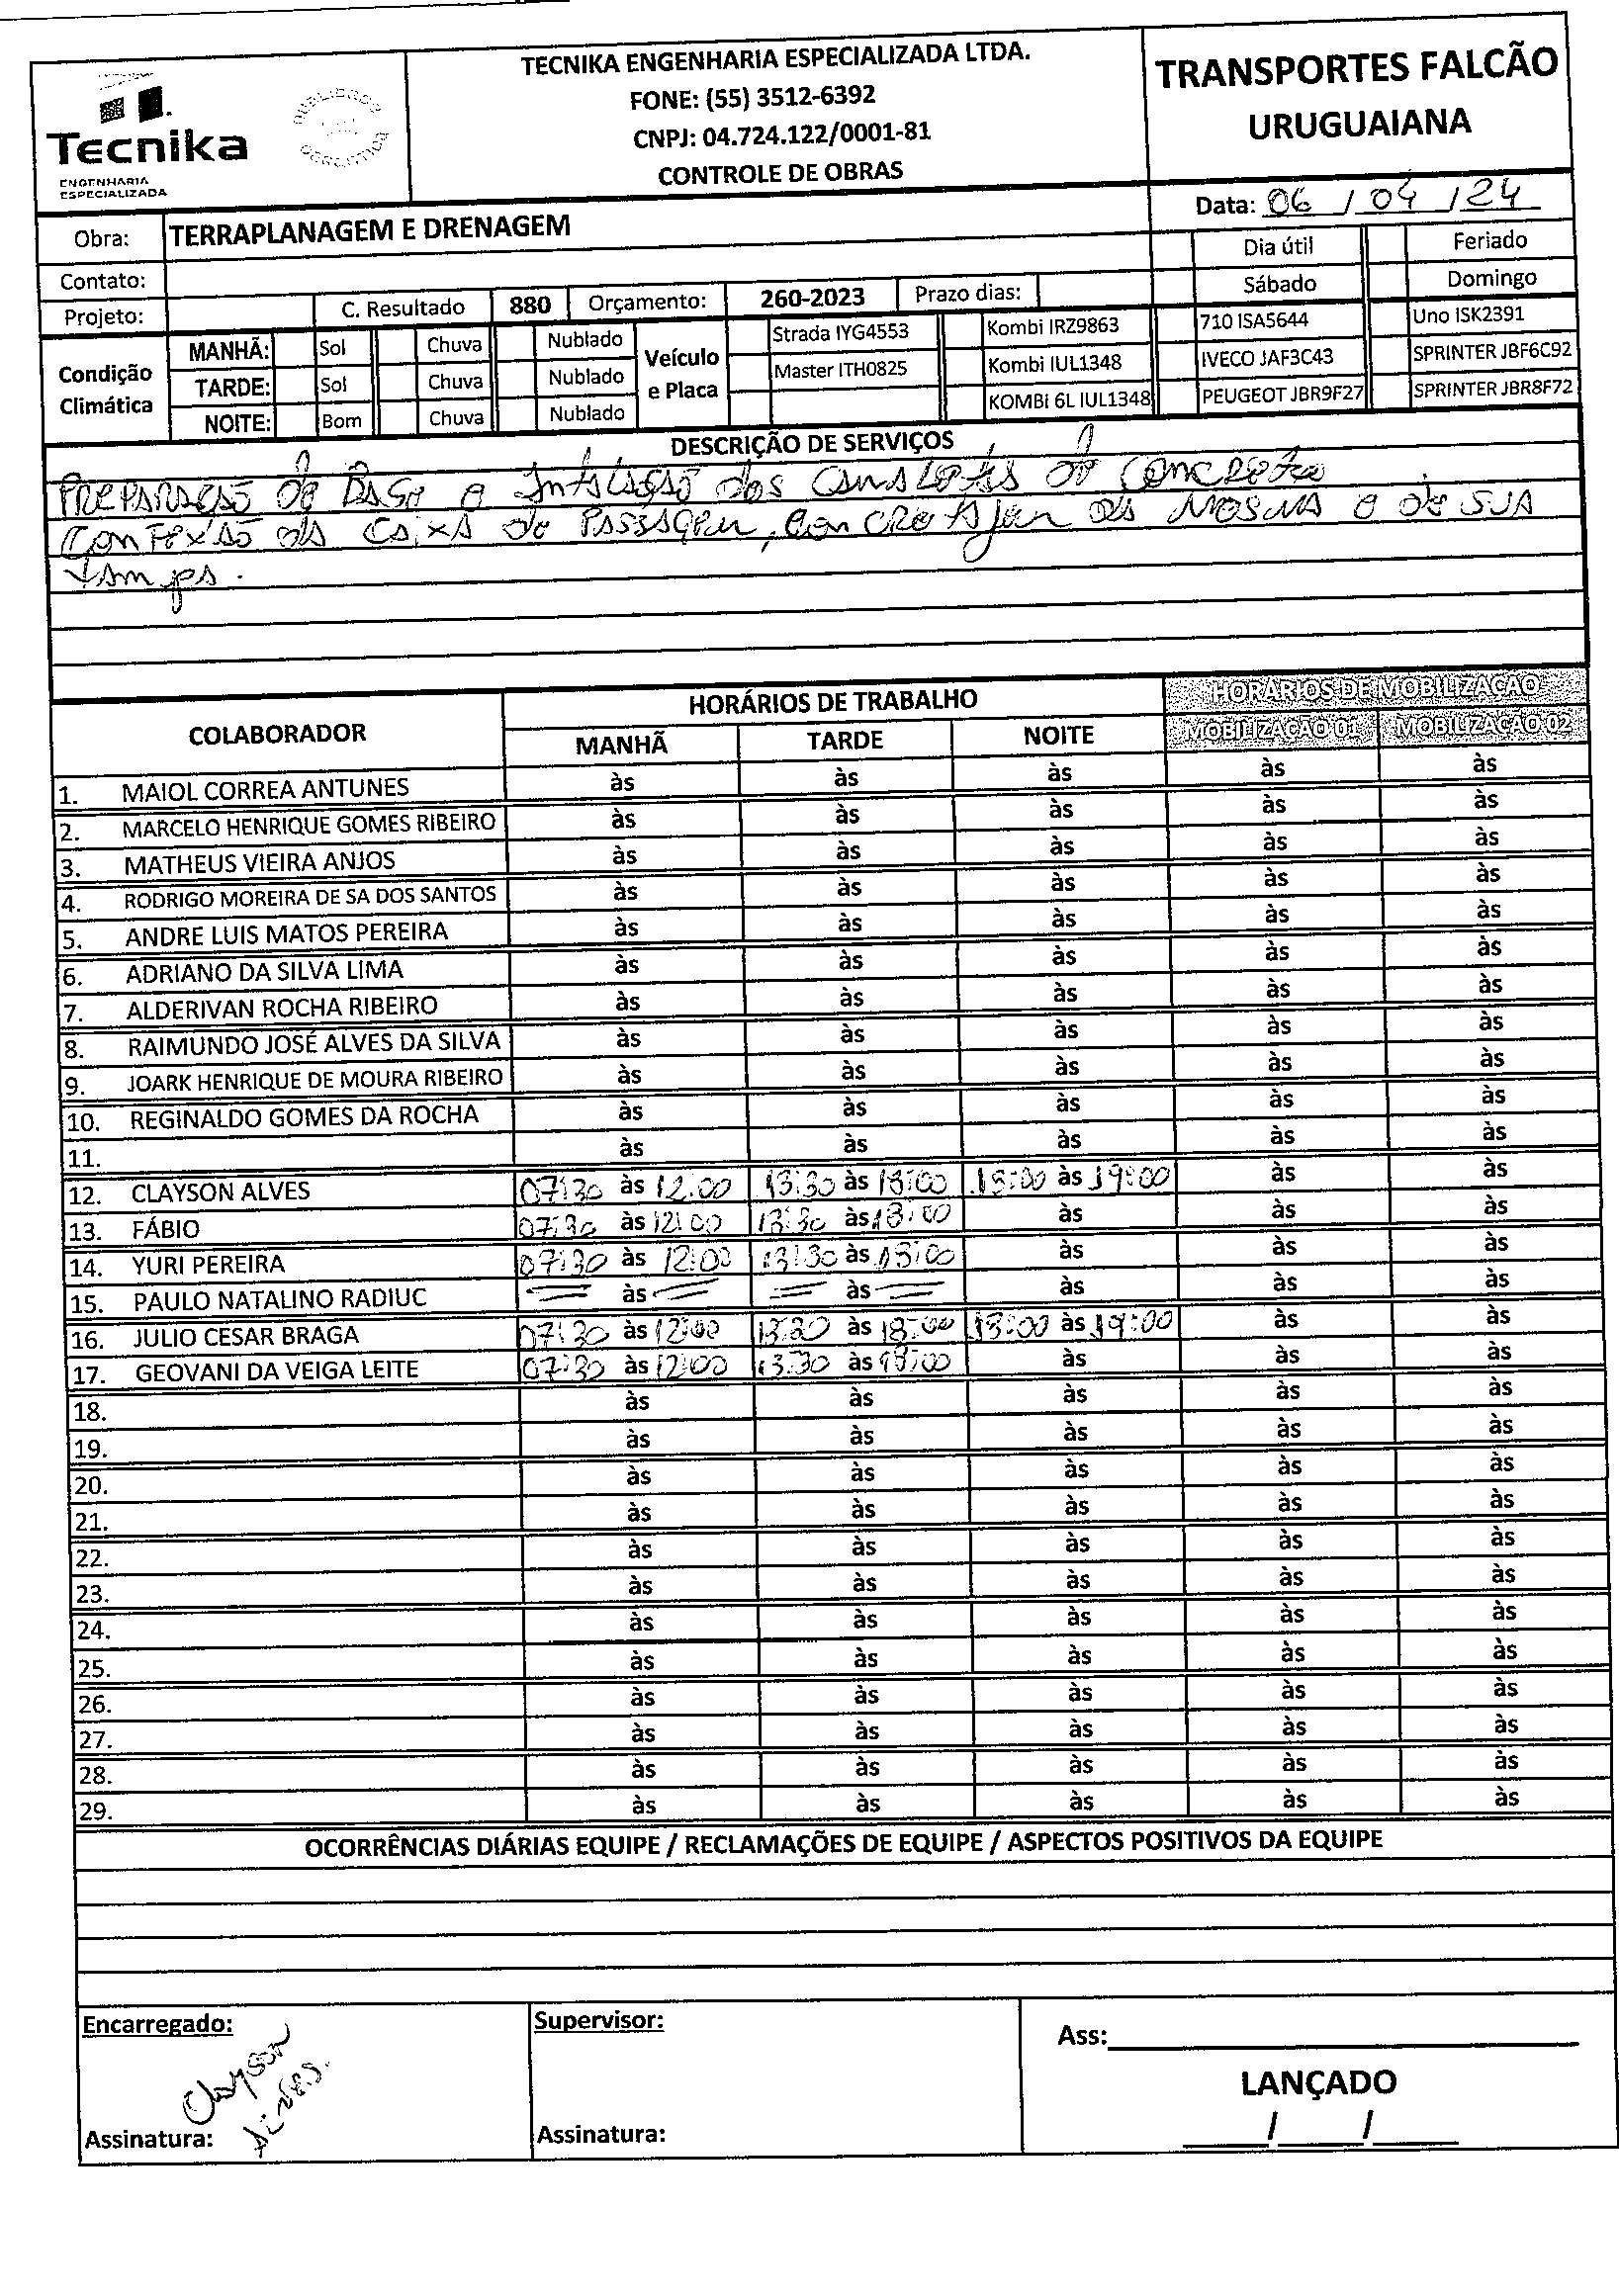 Tecnika
ENGENHARIA
ESPECIALIZADA
TECNIKA ENGENHARIA ESPECIALIZADA LTDA.
FONE: (55) 3512-6392
CNPJ: 04.724.122/0001-81
CONTROLE DE OBRAS
TRANSPORTES FALCÃO
URUGUAIANA
Data: 06 / 04 / 24
Obra: TERRAPLANAGEM E DRENAGEM
Dia útil Feriado
Contato:
Sábado Domingo
Projeto: C. Resultado 880 Orçamento: 260-2023 Prazo dias:
Condição Climática
MANHÃ: Sol Chuva Nublado
TARDE: Sol Chuva Nublado
NOITE: Bom Chuva Nublado
Veículo e Placa
Strada IYG4553 Kombi IRZ9863 710 ISA5644 Uno ISK2391
Master ITH0825 Kombi IUL1348 IVECO JAF3C43 SPRINTER JBF6C92
KOMBI 6L IUL1348 PEUGEOT JBR9F27 SPRINTER JBR8F72
DESCRIÇÃO DE SERVIÇOS
PREPARAÇÃO de BASE e Instalação das canaletas de concreto
Confexão da caixa de passagem, concretajem da mesma e de sua
tampa.
COLABORADOR HORÁRIOS DE TRABALHO HORÁRIOS DE MOBILIZAÇÃO
MANHÃ TARDE NOITE MOBILIZAÇÃO 01 MOBILIZAÇÃO 02
1. MAIOL CORREA ANTUNES às às às às às
2. MARCELO HENRIQUE GOMES RIBEIRO às às às às às
3. MATHEUS VIEIRA ANJOS às às às às às
4. RODRIGO MOREIRA DE SA DOS SANTOS às às às às às
5. ANDRE LUIS MATOS PEREIRA às às às às às
6. ADRIANO DA SILVA LIMA às às às às às
7. ALDERIVAN ROCHA RIBEIRO às às às às às
8. RAIMUNDO JOSÉ ALVES DA SILVA às às às às às
9. JOARK HENRIQUE DE MOURA RIBEIRO às às às às às
10. REGINALDO GOMES DA ROCHA às às às às às
11. às às às às às
12. CLAYSON ALVES 07:30 às 12:00 13:30 às 18:00 18:00 às 19:00 às às
13. FÁBIO 07:30 às 12:00 13:30 às 18:00 às às às
14. YURI PEREIRA 07:30 às 12:00 13:30 às 18:00 às às às
15. PAULO NATALINO RADIUC às às às às às
16. JULIO CESAR BRAGA 07:30 às 12:00 13:30 às 18:00 18:00 às 19:00 às às
17. GEOVANI DA VEIGA LEITE 07:30 às 12:00 13:30 às 18:00 às às às
18. às às às às às
19. às às às às às
20. às às às às às
21. às às às às às
22. às às às às às
23. às às às às às
24. às às às às às
25. às às às às às
26. às às às às às
27. às às às às às
28. às às às às às
29. às às às às às
OCORRÊNCIAS DIÁRIAS EQUIPE / RECLAMAÇÕES DE EQUIPE / ASPECTOS POSITIVOS DA EQUIPE
Encarregado: Supervisor: Ass:
Clayson
Alves.
LANÇADO
Assinatura: Assinatura: / /